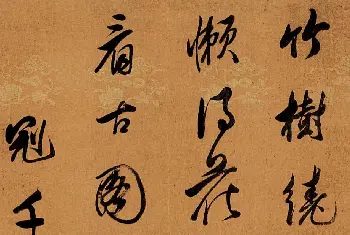 竹樹繞
懶得花
看古圖
冠千